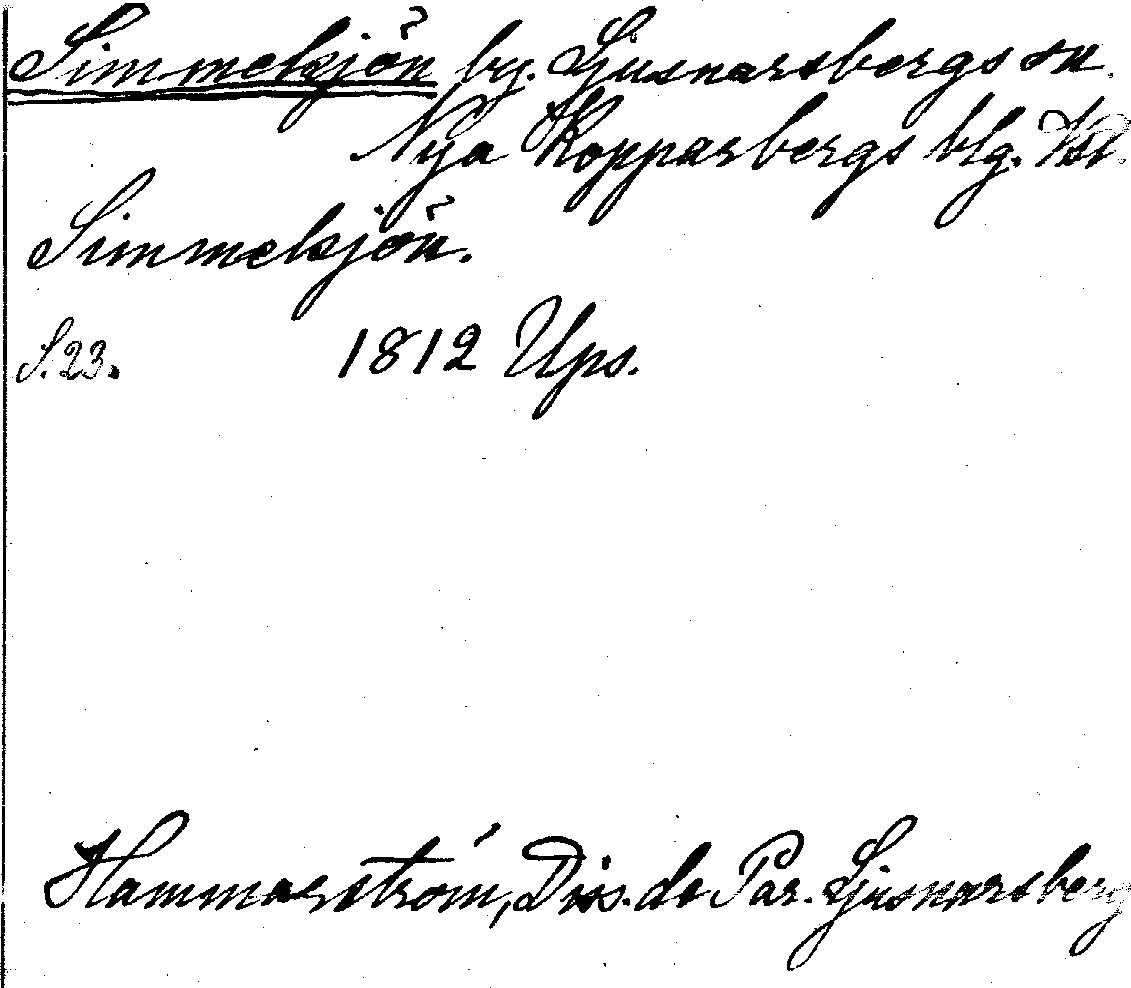 Simmelsjön by. Ljusnarsbergs sn.
Nya Kopparbergs blg. Vstl.
Simmelsjön.
S. 23. 1812 Ups.
Hammarström, Diss. de Par. Ljusnarsberg